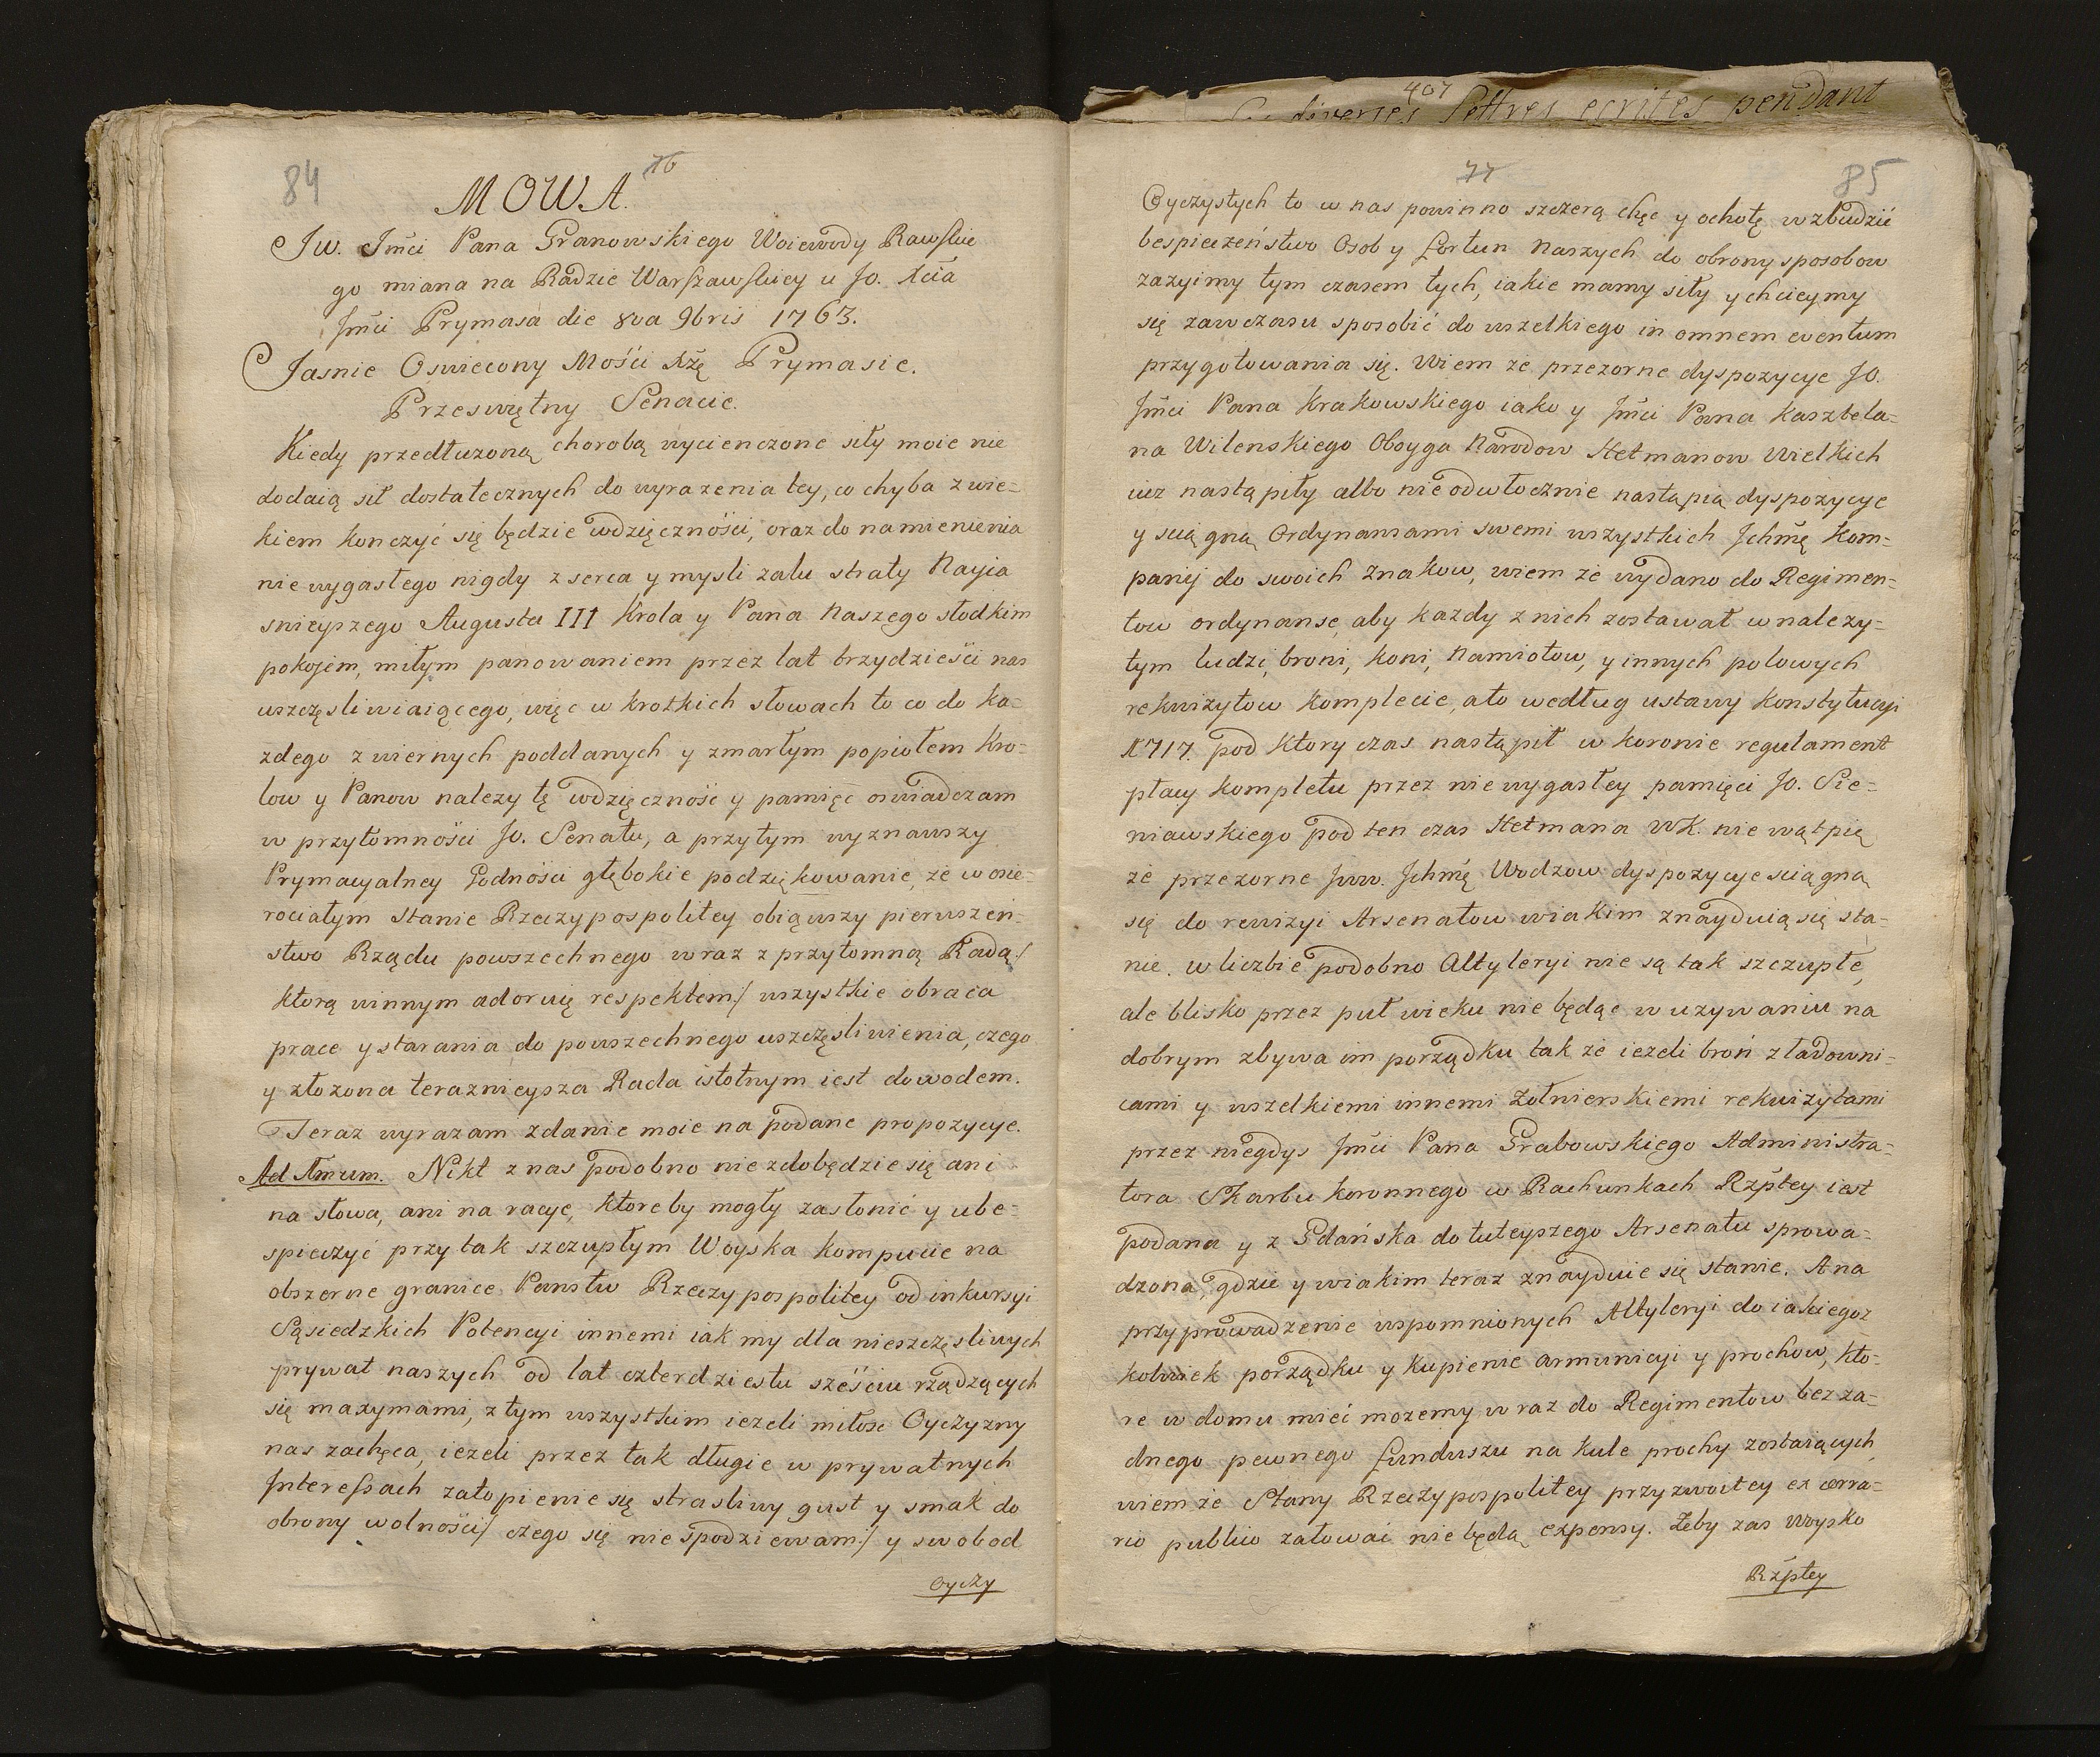 84
76
MOWA.
Jw. Jmći Pana Granowskiego Woiewody Rawskie
go miana na Radzie Warszawskiey u Jo. Xcia
Jmći Prymasa die 8va 9bris 1763.
Jasnie Oswiecony Mości Xżę Prymasie.
Przeswiętny Senacie.
Kiedy przedłuzoną chorobą wycienczone siły moie nie
dodaią sił dostatecznych do wyrazenia tey, co chyba z wie-
kiem konczyć się będzie wdzięczności, oraz do namienienia
niewygasłego nigdy z serca y mysli zalu straty Nayia
snieyszego Augusta III Krola y Pana Naszego słodkim
pokojem, miłym panowaniem przez lat trzydzieści nas
uszczęsliwiaiącego, więc w krotkich słowach to co do ka-
zdego z wiernych poddanych y zmarłym popiołem Kro-
low y Panow nalezy tę wdzięczność y pamięć oswiadczam
w przytomności Jo. Senatu, a przytym wyznawszy
Prymacyalney Godności głębokie podziękowanie, ze w osie-
rociałym stanie Rzeczypospolitey obiąwszy pierwszeń-
stwo Rządu powszechnego wraz z przytomną Radą/
ktorą winnym adoruię respektem:/ wszystkie obraca
prace y starania do powszechnego uszczęsliwienia, czego
y złozona teraznieysza Rada istotnym iest dowodem.
Teraz wyrazam zdanie moie na podane propozycye.
Ad 1mum. Nikt z nas podobno nie zdobędzie się ani
na słowa, ani na racye, ktoreby mogły zasłonić y ube-
spieczyć przy tak szczupłym Woyska kompucie na
obszerne granice Panstw Rzeczypospolitey od inkursyi
Sąsiedzkich Potencyi innemi iak my dla nieszczęsliwych
prywat naszych od lat czterdziestu sześciu rządzących
się maxymami, z tym wszystkim iezeli miłość Oyczyzny
nas zachęca, iezeli przez tak długie w prywatnych
Interessach zatopienie się strasliwy gust y smak do
obrony wolności/ czego się nie spodziewam:/ y swobod
oyczy
407
diverses lettres ecrites pendant
77
85
Oyczystych to w nas powinno szczerą chęć y ochotę wzbudzić
bespieczeństwo Osob y fortun Naszych do obrony sposobow
zazyimy tym czasem tych, iakie mamy siły y chcieymy
się zawczasu sposobić do wszelkiego in omnem eventum
przygotowania się. Wiem ze przezorne dyspozycye Jo.
Jmći Pana Krakowskiego iako y Jmći Pana Kasztela-
na Wilenskiego Oboyga Narodow Hetmanow Wielkich
iuz nastąpiły albo nieodwłocznie nastąpią dyspozycye
y sciągną Ordynansami swemi wszystkich Jchmę Kom-
panij do swoich Znakow, wiem ze wydano do Regimen-
tow ordynanse, aby kazdy z nich zostawał w nalezy-
tym ludzi, broni, koni, Namiotow, y innych polowych
rekwizytow komplecie, a to według ustawy Konstytucyi
1717. pod ktory czas nastąpił w koronie regulament
płacy kompletu przez niewygasłey pamięci Jo. Sie-
niawskiego pod ten czas Hetmana WK. nie wątpię
ze przezorne Jww. Jchmę Wodzow dyspozycye sciągną
się do rewizyi Arsenałow w iakim znayduią się sta-
nie. w liczbie podobno Altyleryi nie są tak szczupłe,
ale blisko przez puł wieku nie będąc w uzywaniu na
dobrym zbywa im porządku tak ze iezeli broń z ładowni-
cami y wszelkiemi innemi Zołnierskiemi rekwizytami
przez niegdys Jmći Pana Grabowskiego Administra-
tora Skarbu koronnego w Rachunkach Rzpltey iest
podana y z Gdańska do tuteyszego Arsenału sprowa-
dzona, gdzie y w iakim teraz znayduie się stanie. A na
przyprowadzenie wspomnionych Altyleryi do iakiegoz
kolwiek porządku y kupienie armunicyi y prochow, kto-
re w domu mieć mozemy wraz do Regimentow bez za-
dnego pewnego funduszu na kule prochy zostaiących
wiem ze Stany Rzeczypospolitey przyzwoitey ex aerra-
rio publico załować nie będą expensy. Zeby zas Woysko
Rzpltey